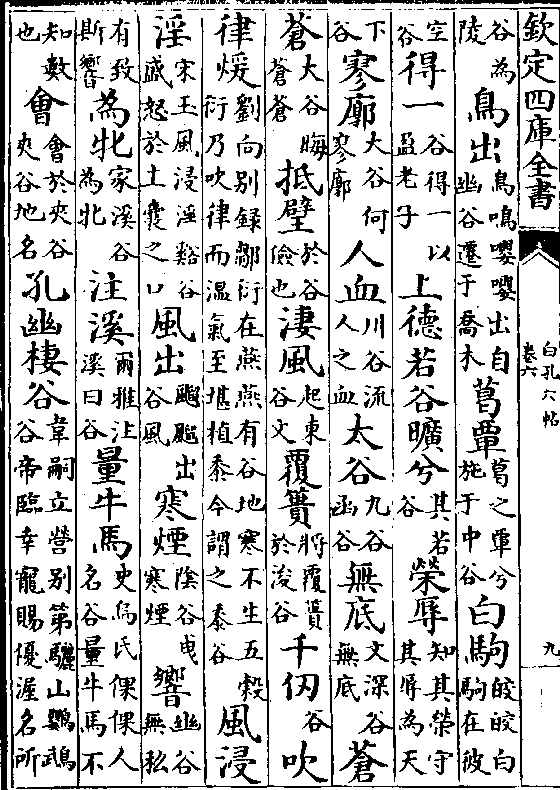 欽定四庫全書
白孔六帖
卷六
九
谷為陵鳥出鳥鳴嚶嚶出自幽谷遷于喬木葛覃葛之覃兮施于中谷白駒皎皎白駒在彼
空谷得一谷得一以盈老子上德若谷曠兮其若谷榮辱知其榮守其辱為天
下谷寥廓大谷何寥廓人血川谷流人之血太谷九谷函谷無底文深谷無底蒼
蒼大谷晦蒼蒼抵壁於谷儉也淒風起東谷文覆簣將覆簣於浚谷千仞谷吹
律煖劉向别録鄒衍在燕燕有谷地寒不生五穀衍乃吹律而溫氣至堪植黍今謂之黍谷風浸
淫宋玉風浸淫谿谷盛怒於土囊之口風出飈飈出谷風寒煙陰谷曳寒煙響幽谷無私
有致斯響為牝家溪谷為牝注溪爾雅注溪曰谷量牛馬史烏氏倮倮人名谷量牛馬不
知數也會會於夾谷夾谷地名孔幽棲谷韋嗣立營别第驪山鸚鵡谷帝臨幸寵賜優渥名所